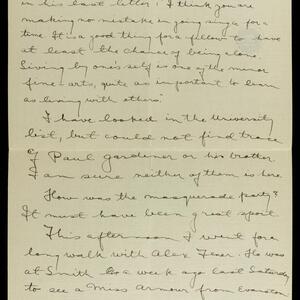 in his last letter: "I think you are
making no mistake in going single for a
time. It is a good thing for a fellow to have
at least the chance of being alone.
Living by one's self is one of the minor
fine-arts, quite as important to learn
as living with others."
I have looked in the University
list, but could not find trace
of Paul Gardiner or his brother.
I am sure neither of them is here.
How was the masquerade party?
It must have been great sport.
This afternoon I went for a
long walk with Alex. He was
at Smith a week ago last Saturday
to see a Miss Armour from Evanston